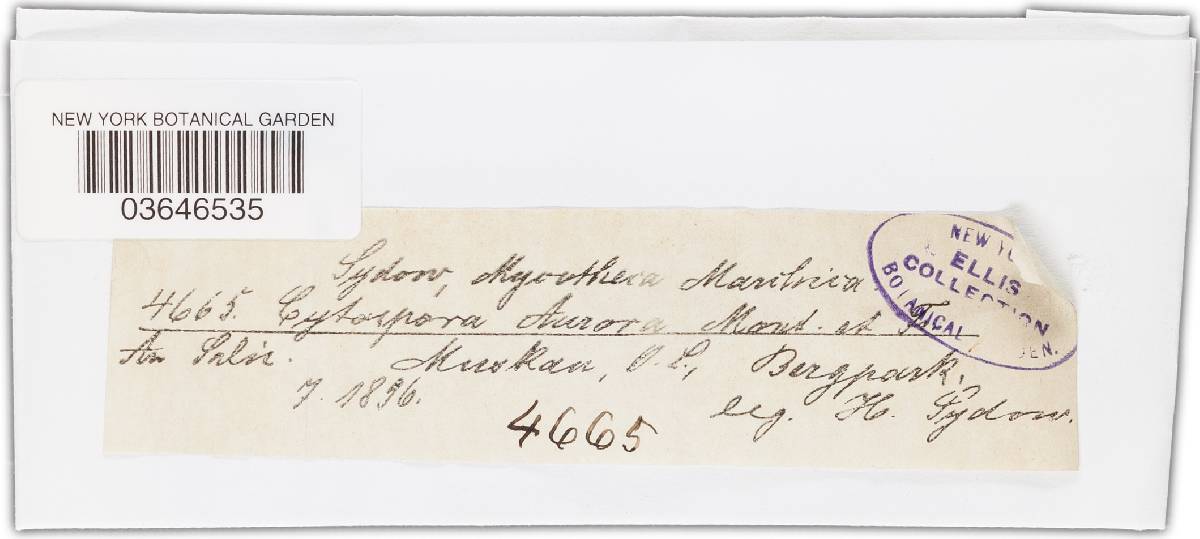 NEW YORK BOTANICAL GARDEN
03646535
NEW YO
ELLIS
COLLECTION
BOTANICAL
DEN.
Sydow, Mycotheca Marchica
4665. Cytospora Aurora Mont. et Fr.
An Salix. Muskau, O. L., Bergpark,
7. 1896. leg. H. Sydow.
4665